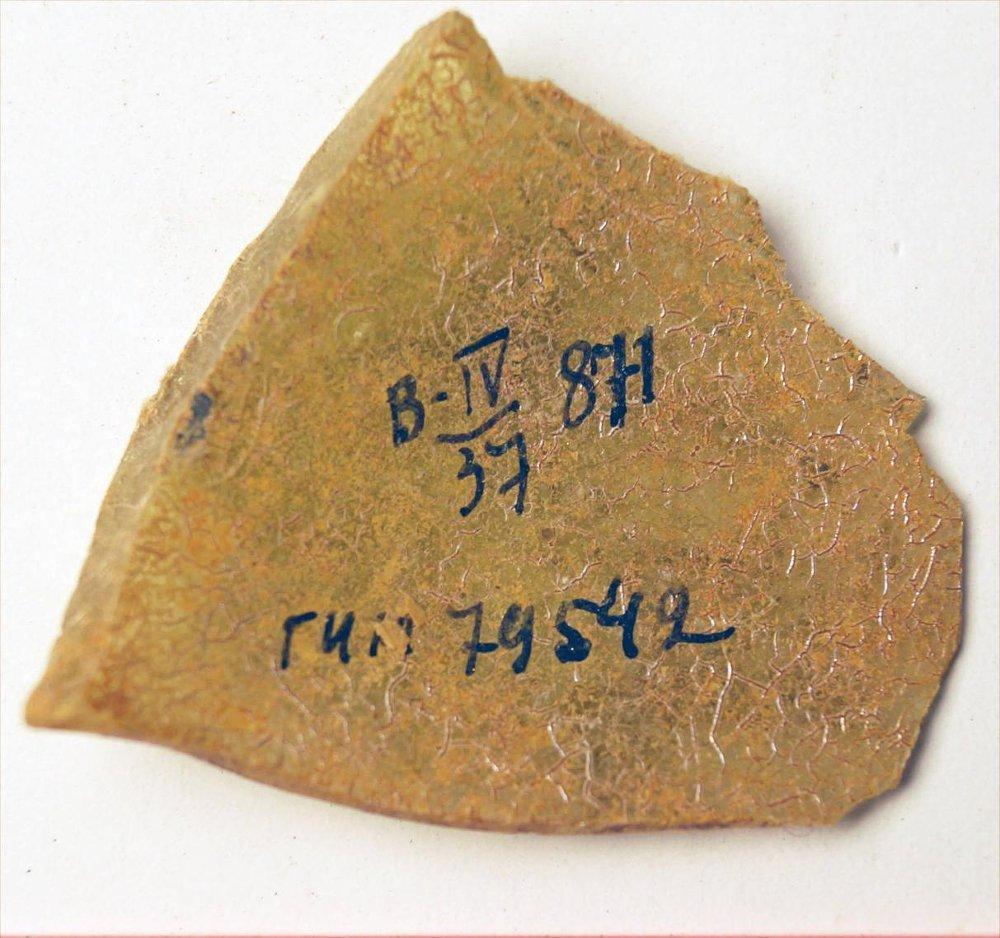 В-IV/37 871
ГИМ 79542